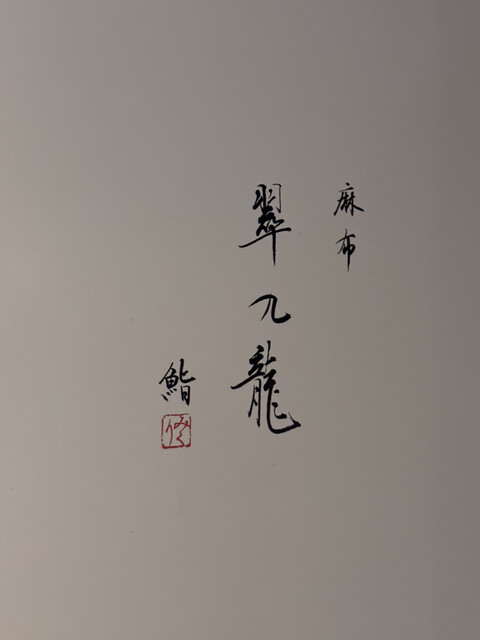 麻布
翠九龍
鮨